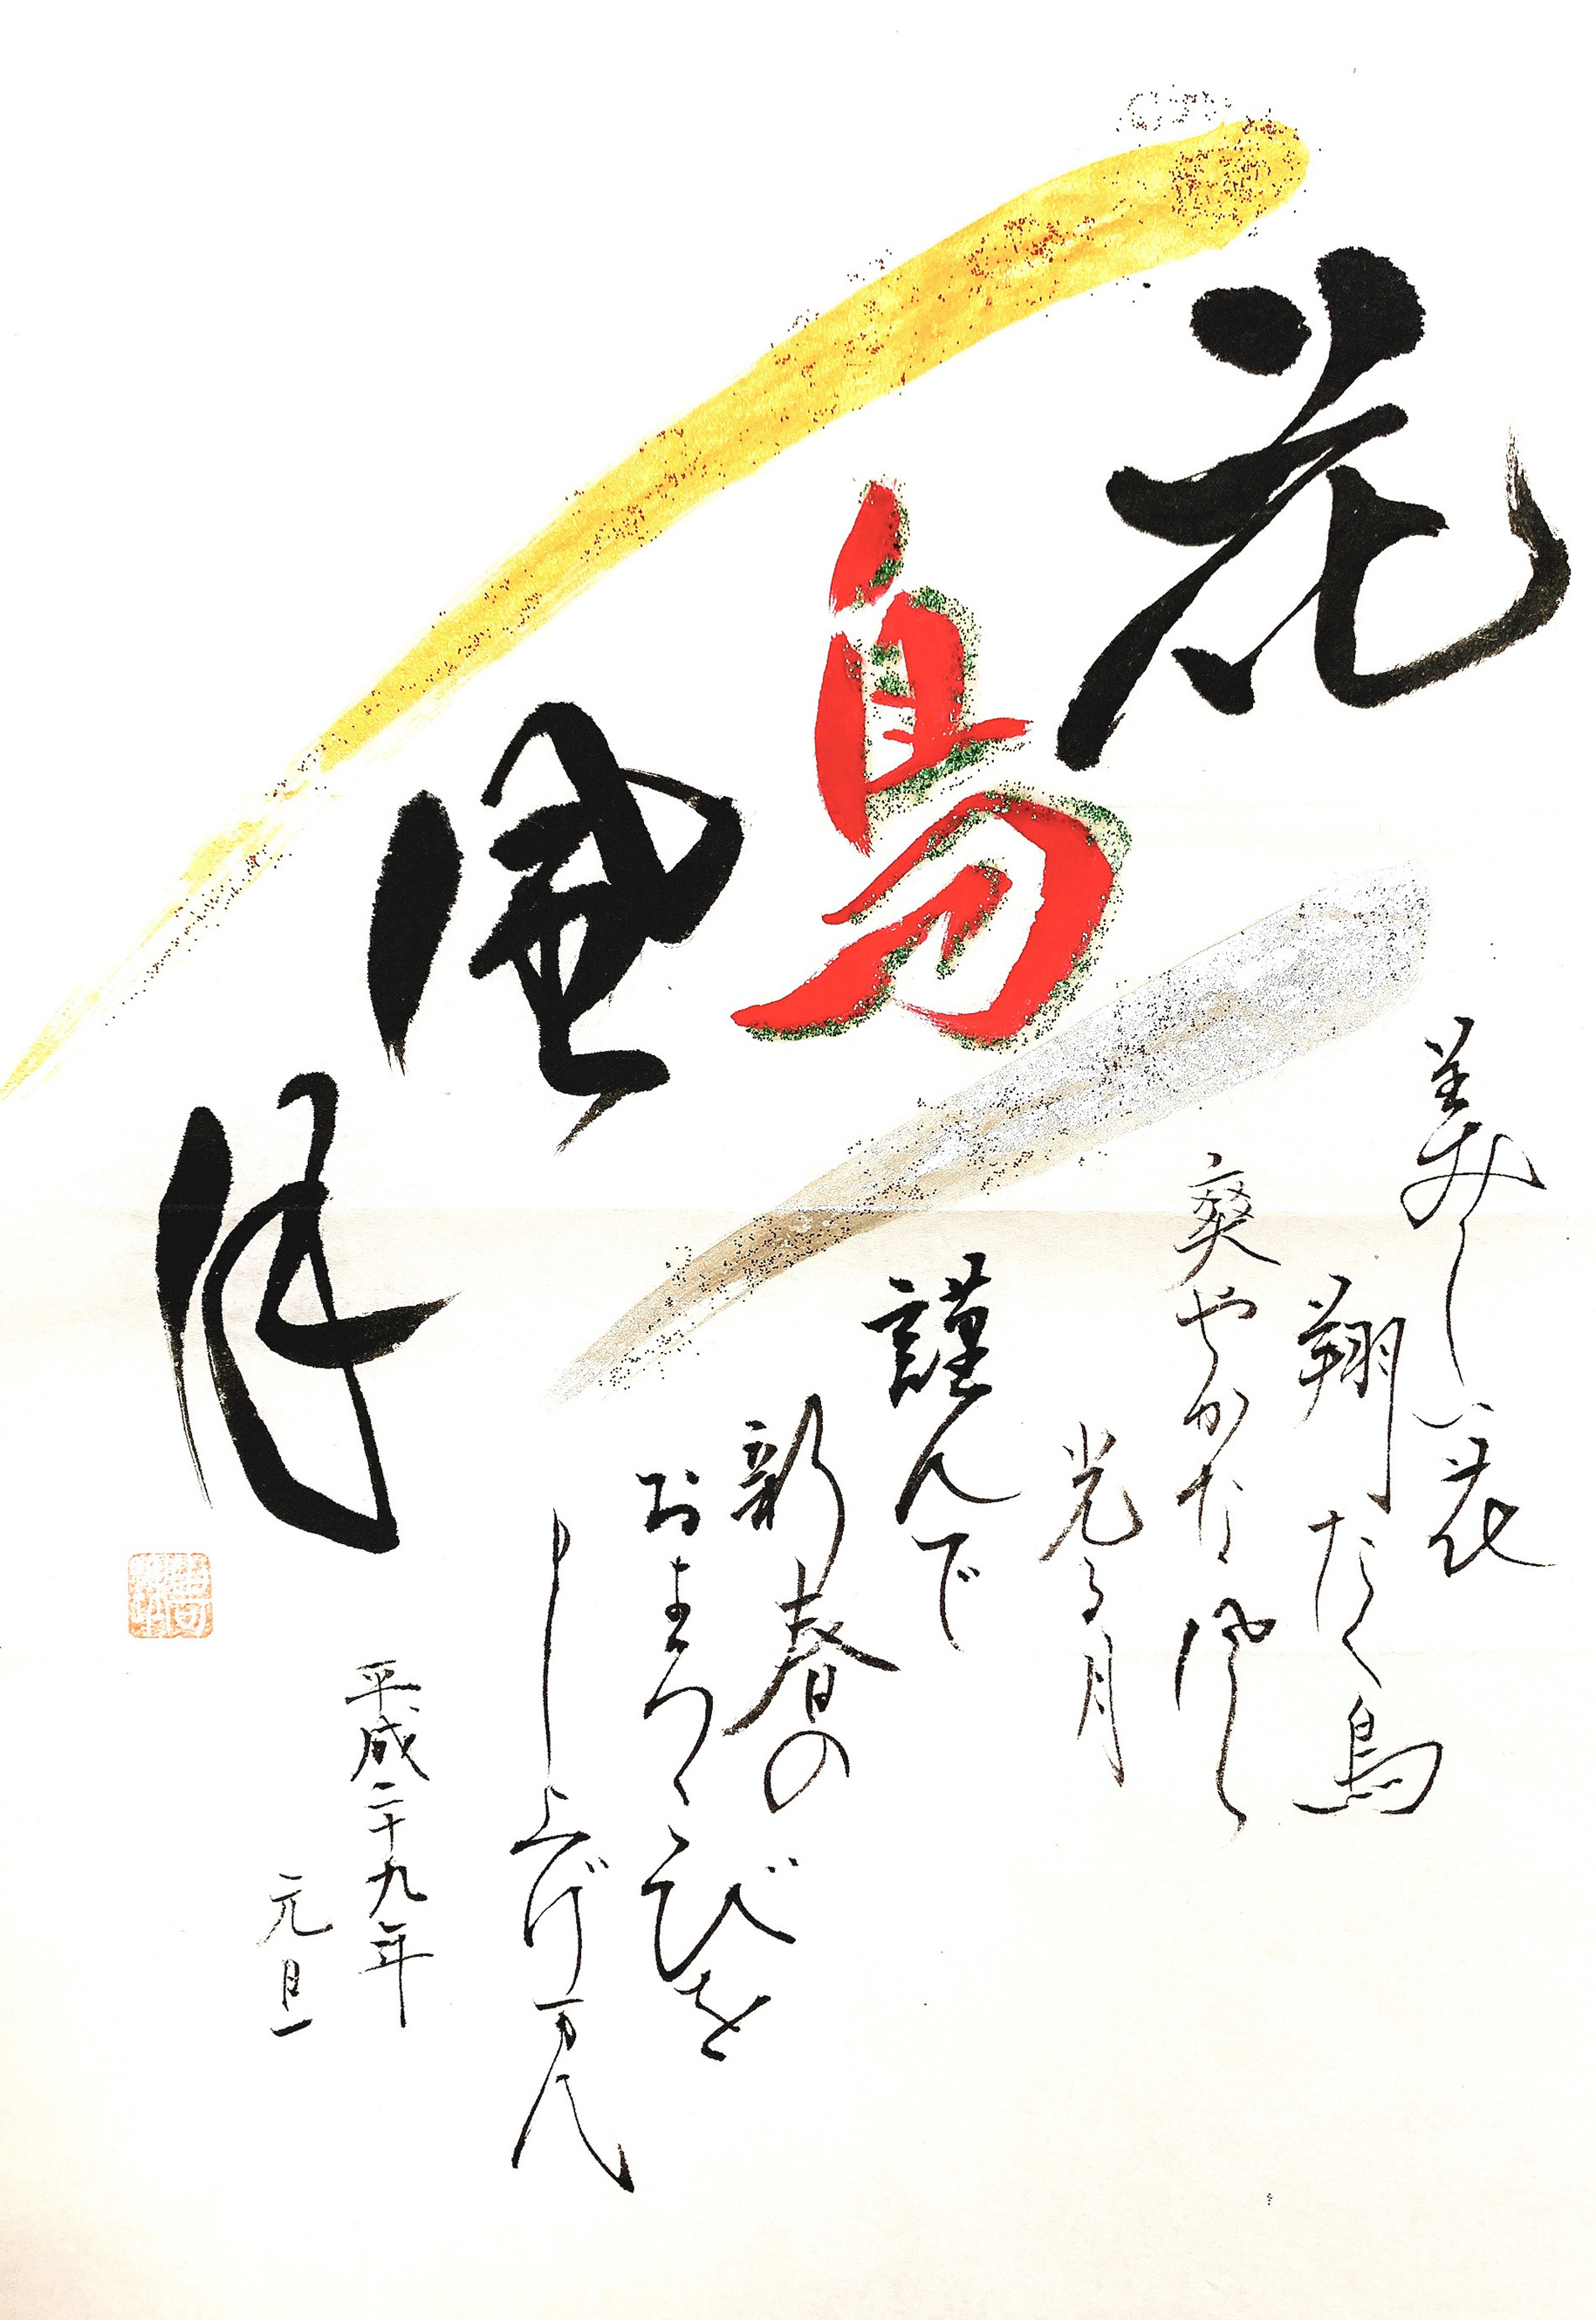 花鳥風月
美しい花
翔たく鳥
爽やかな風
光る月
謹んで
新春の
およろこびを
申上げます
平成二十九年
元旦